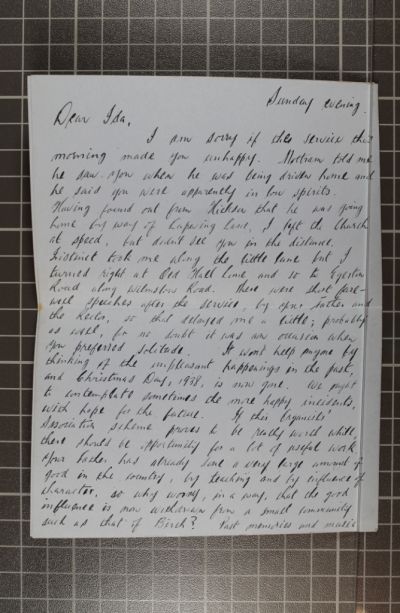 Sunday evening.
Dear Ida,
I am sorry if the service this
morning made you unhappy. Mottram told me
he saw you when he was being driven home and
he said you were apparently in low spirits.
Having found out from Hickson that he was going
home by way of Lapwing Lane, I left the Church
at speed, but didn't see you in the distance.
Instinct took me along the little lane but I
turned right at Old Hall Lane, and so to Egerton
Road along Wilmslow Road. There were short fare-
well speeches after the service, by your father and
the Rector, so that delayed me a little; probably
as well, for no doubt it was an occasion when
you preferred solitude. It won't help anyone by
thinking of the unpleasant happenings in the past,
and Christmas Day, 1938, is now gone. We ought
to contemplate sometimes the more happy incidents,
with hope for the future. If this Organists'
Association scheme proves to be really worth while,
there should be opportunity for a lot of useful work
Your father has already done a very large amount of
good in the country, by teaching and by influence of
character, so why worry, in a way, that the good
influence is now withdrawn from a small community
such as that of Birch? Past memories and music